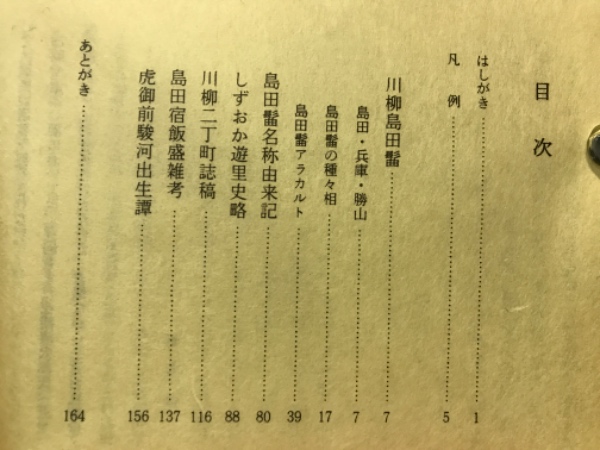 目次
はしがき……1
凡例……5
川柳島田髷……7
島田・兵庫・勝山……7
島田髷の種々相……17
島田髷アラカルト……39
島田髷名称由来記……80
しずおか遊里史略……88
川柳二丁町誌稿……116
島田宿飯盛雑考……137
虎御前駿河出生譚……156
あとがき……164